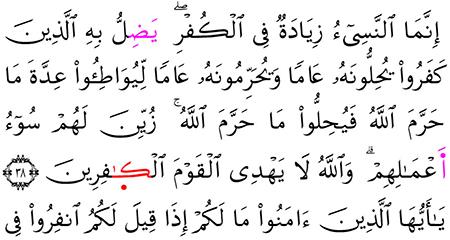 إِنَّمَا ٱلنَّسِىٓءُ زِيَادَةٌ فِى ٱلْكُفْرِۖ يَضِلُّ بِهِ ٱلَّذِينَ
كَفَرُوا۟ يُحِلُّونَهُۥ عَامًا وَيُحَرِّمُونَهُۥ عَامًا لِّيُوَاطِـُٔوا۟ عِدَّةَ مَا
حَرَّمَ ٱللَّهُ فَيُحِلُّوا۟ مَا حَرَّمَ ٱللَّهُۚ زُيِّنَ لَهُمْ سُوٓءُ
أَعْمَـٰلِهِمْۗ وَٱللَّهُ لَا يَهْدِى ٱلْقَوْمَ ٱلْكَـٰفِرِينَ ٣٨
يَـٰٓأَيُّهَا ٱلَّذِينَ ءَامَنُوا۟ مَا لَكُمْ إِذَا قِيلَ لَكُمُ ٱنفِرُوا۟ فِى